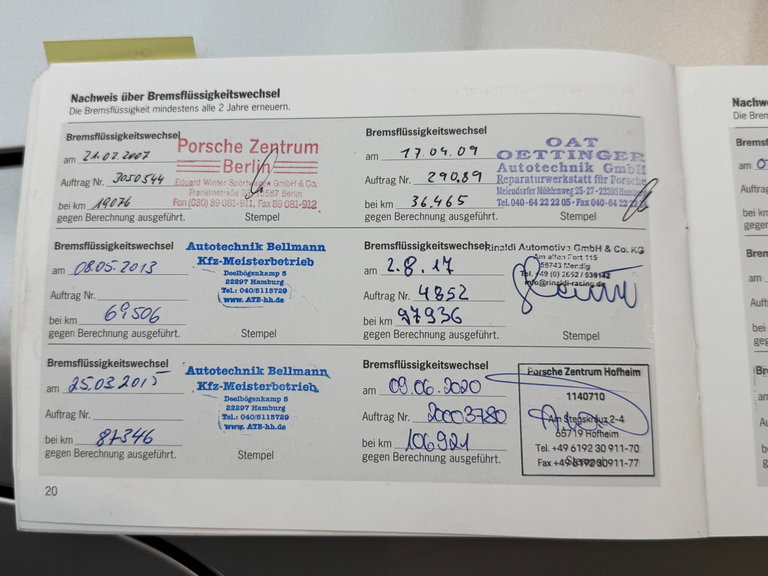 Nachweis über Bremsflüssigkeitswechsel
Die Bremsflüssigkeit mindestens alle 2 Jahre erneuern.
Bremsflüssigkeitswechsel
am 21.02.2007
Auftrag Nr. 3050544
bei km 19076
gegen Berechnung ausgeführt.
Stempel
Porsche Zentrum
Berlin
Eduard Winter Sportwagen GmbH & Co.
Franklinstraße 587 Berlin
Fon (030) 39 081-911, Fax 39 081-912
Bremsflüssigkeitswechsel
am 08.05.2013
Auftrag Nr.
bei km 69506
gegen Berechnung ausgeführt.
Stempel
Autotechnik Bellmann
Kfz-Meisterbetrieb
Deelbögenkamp 5
22297 Hamburg
Tel.: 040/5115729
www. ATB-hh.de
Bremsflüssigkeitswechsel
am 25.03.2015
Auftrag Nr.
bei km 87346
gegen Berechnung ausgeführt.
Stempel
Autotechnik Bellmann
Kfz-Meisterbetrieb
Deelbögenkamp 5
22297 Hamburg
Tel.: 040/5115729
www. ATB-hh.de
20
Bremsflüssigkeitswechsel
am 17.04.09
Auftrag Nr. 29089
bei km 36.465
gegen Berechnung ausgeführt.
Stempel
OAT
OETTINGER
Autotechnik GmbH
Reparaturwerkstatt für Porsche
Meiendorfer Mühlenweg 25-27 · 22393 Hamburg
Tel. 040-64 22 22 05 · Fax 040-64 22
Bremsflüssigkeitswechsel
am 2.8.17
Auftrag Nr. 4852
bei km 97936
gegen Berechnung ausgeführt.
Stempel
Rinaldi Automotive GmbH & Co. KG
Am alten Fort 115
56743 Mendig
Tel. +49 (0) 2652 / 939142
info@rinaldi-racing.de
Bremsflüssigkeitswechsel
am 09.06.2020
Auftrag Nr. 20003780
bei km 106921
gegen Berechnung ausgeführt.
Stempel
Porsche Zentrum Hofheim
1140710
Am Stegskreuz 2-4
65719 Hofheim
Tel. +49 6192 30 911-70
Fax +49 6192 30911-77
Nachw
Die Brem
Bremsf
am
Auftrag
bei km
gegen
Brem
am
Auftrag
bei km
gegen
am
Auftrag
bei km
gegen